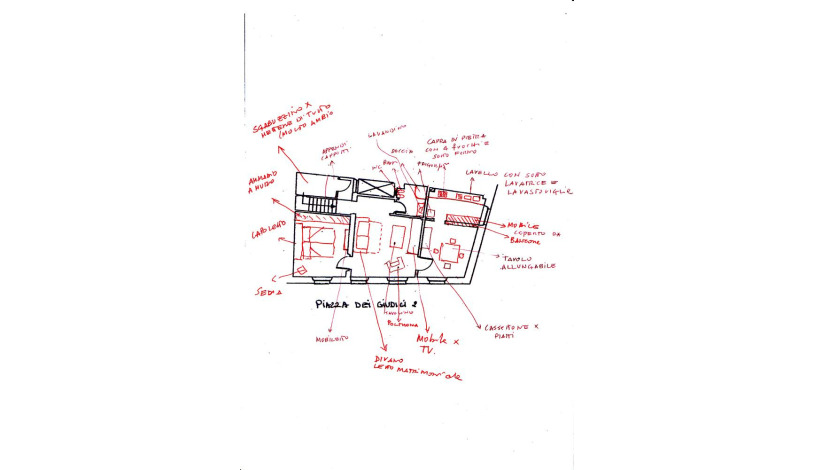 SGABUZZINO X
METTERE DI TUTTO
(MOLTO AMPIO
APPENDI
CAPPOTTI
LAVANDINO
DOCCIA
WC
CAPPA IN PIETRA
CON 4 FUOCHI E
SOTTO FORNO
LAVELLO CON SOTTO
LAVATRICE E
LAVASTOVIGLIE
ARMADIO
A MURO
MOBILE
COPERTO DA
BANCONE
TAVOLO
ALLUNGABILE
SEDIA
PIAZZA DEI GIUDICI 2
POLTRONA
MOBILETTO
MOBILE X
TV.
CASSETTONE X
PIATTI
DIVANO
LETTO MATRIMONIALE